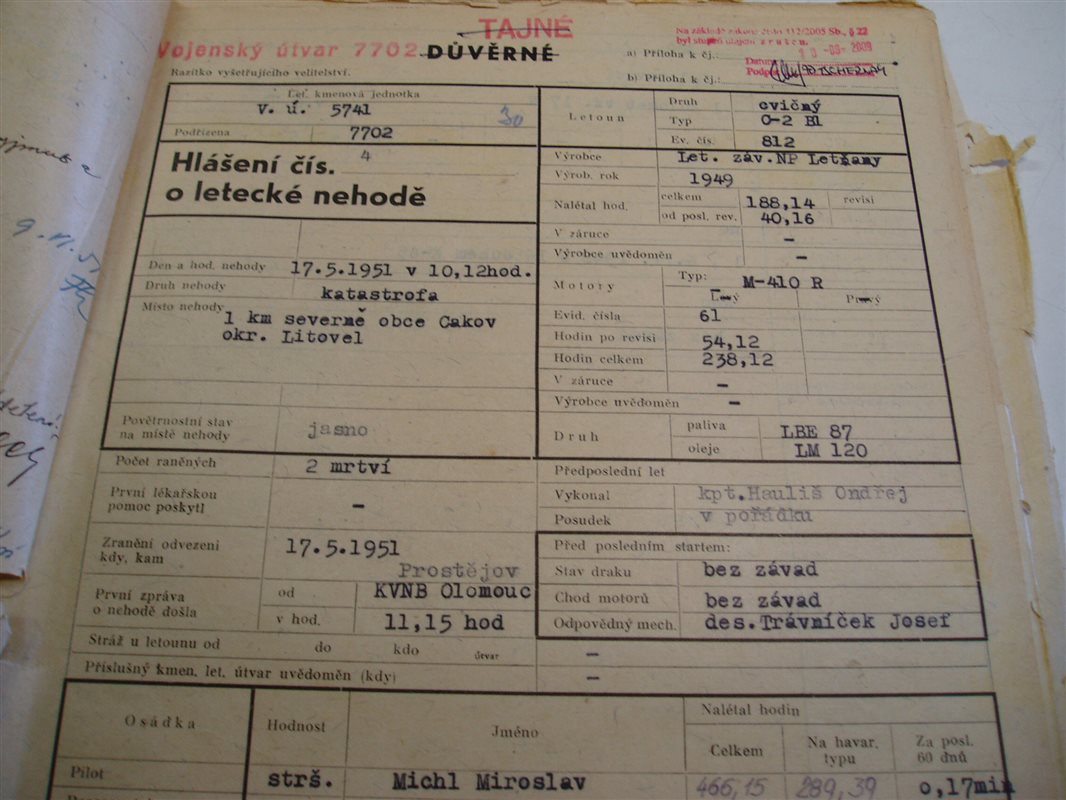 TAJNÉ
Vojenský útvar 7702
DŮVĚRNÉ
Na základě zákona číslo 412/2005 Sb., § 22
byl stupeň utajení zrušen.
Datum
Podpis
a) Příloha k čj.:
b) Příloha k čj.:
Razítko vyšetřujícího velitelství.
Let. kmenová jednotka
V. ú. 5741
30
Podřízena 7702
Hlášení čís. 4
o letecké nehodě
Den a hod. nehody 17.5.1951 v 10,12hod.
Druh nehody katastrofa
Místo nehody 1 km severně obce Cakov
okr. Litovel
Povětrnostní stav
na místě nehody jasno
Počet raněných 2 mrtví
První lékařskou
pomoc poskytl –
Zranění odvezeni
kdy, kam 17.5.1951
Prostějov
První zpráva
o nehodě došla
od KVNB Olomouc
v hod. 11,15 hod
Stráž u letounu od do kdo útvar –
Příslušný kmen. let. útvar uvědoměn (kdy) –
Letoun
Druh cvičný
Typ C-2 B1
Ev. čís. 812
Výrobce Let. záv.NP Letňany
Výrob. rok 1949
Nalétal hod.
celkem 188,14 revisi
od posl. rev. 40,16
V záruce –
Výrobce uvědoměn –
Motory
Typ: M-410 R
Levý Pravý
Evid. čísla 61
Hodin po revisi 54,12
Hodin celkem 238,12
V záruce –
Výrobce uvědoměn –
Druh
paliva LBE 87
oleje LM 120
Předposlední let
Vykonal kpt.Hauliš Ondřej
Posudek v pořádku
Před posledním startem:
Stav draku bez závad
Chod motorů bez závad
Odpovědný mech. des.Trávníček Josef
Osádka Hodnost Jméno
Nalétal hodin
Celkem
Na havar.
typu
Za posl.
60 dnů
Pilot strš. Michl Miroslav 466,15 289,39 0,17min